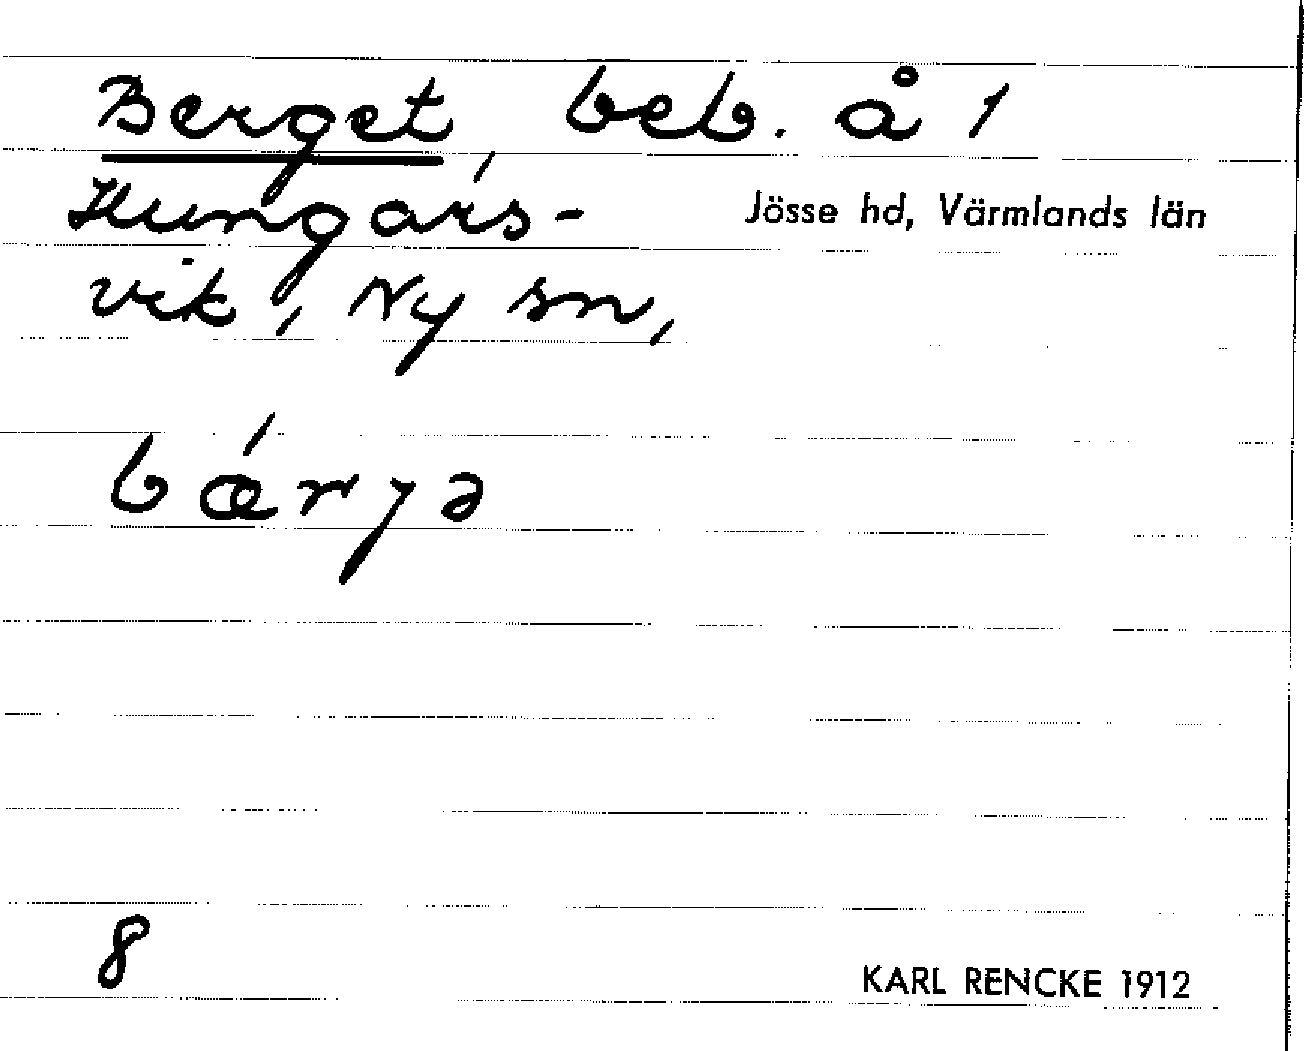 Berget, beb. å 1
Hungars-
vik, Ny sn,
Jösse hd, Värmlands län
bǽryə
8
KARL RENCKE 1912